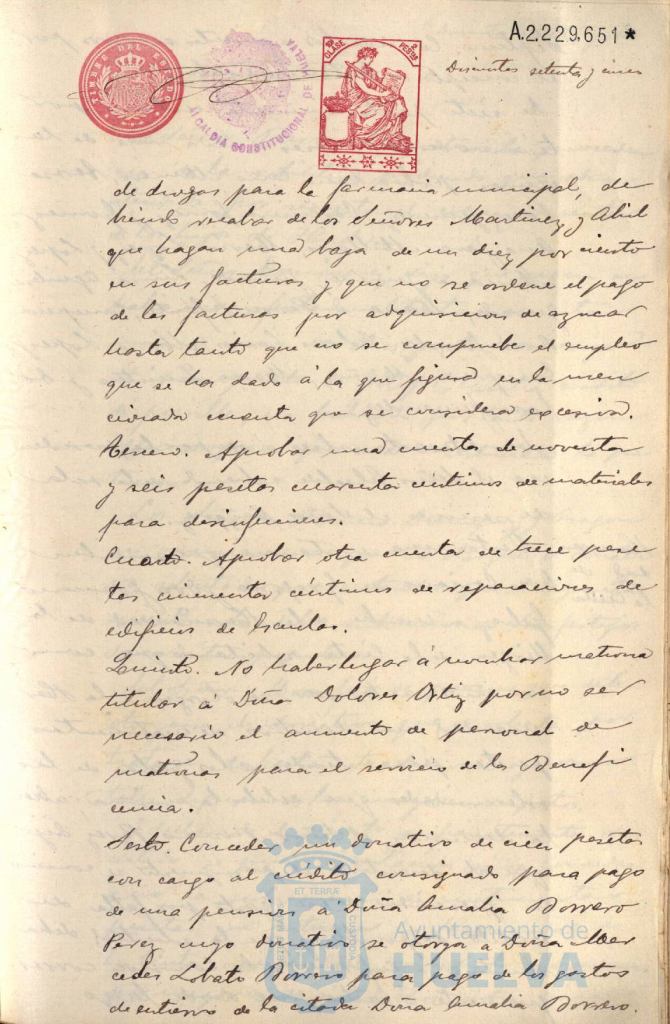 A.2.229.651*
TIMBRE DEL ESTADO
ALCALDIA CONSTITUCIONAL DE HUELVA
CLASE
PESETAS
Doscientos setenta y cinco
de drogas para la farmacia municipal, de
biendo recabar de los Señores Martinez y Abril
que hagan una baja de un diez por ciento
en sus facturas y que no se ordene el pago
de las facturas por adquisicion de azucar
hasta tanto que no se compruebe el empleo
que se ha dado á la que figura en la men
cionada cuenta que se considera excesiva.
Tercero. Aprobar una cuenta de noventa
y seis pesetas cuarenta céntimos de materiales
para desinfecciones.
Cuarto. Aprobar otra cuenta de trece pese
tas cincuenta céntimos de reparaciones de
edificios de Escuelas.
Quinto. No haber lugar á nombrar matrona
titular á Doña Dolores Ortiz por no ser
necesario el aumento de personal de
matronas para el servicio de la Benefi
cencia.
Sesto. Conceder un donativo de cien pesetas
con cargo al crédito consignado para pago
de una pension á Doña Amalia Borrero
Perez cuyo donativo se otorga á Doña Mer
cedes Lobato Borrero para pago de los gastos
de entierro de la citada Doña Amalia Borrero.
ET TERRA
CUSTODIA
Ayuntamiento de
HUELVA